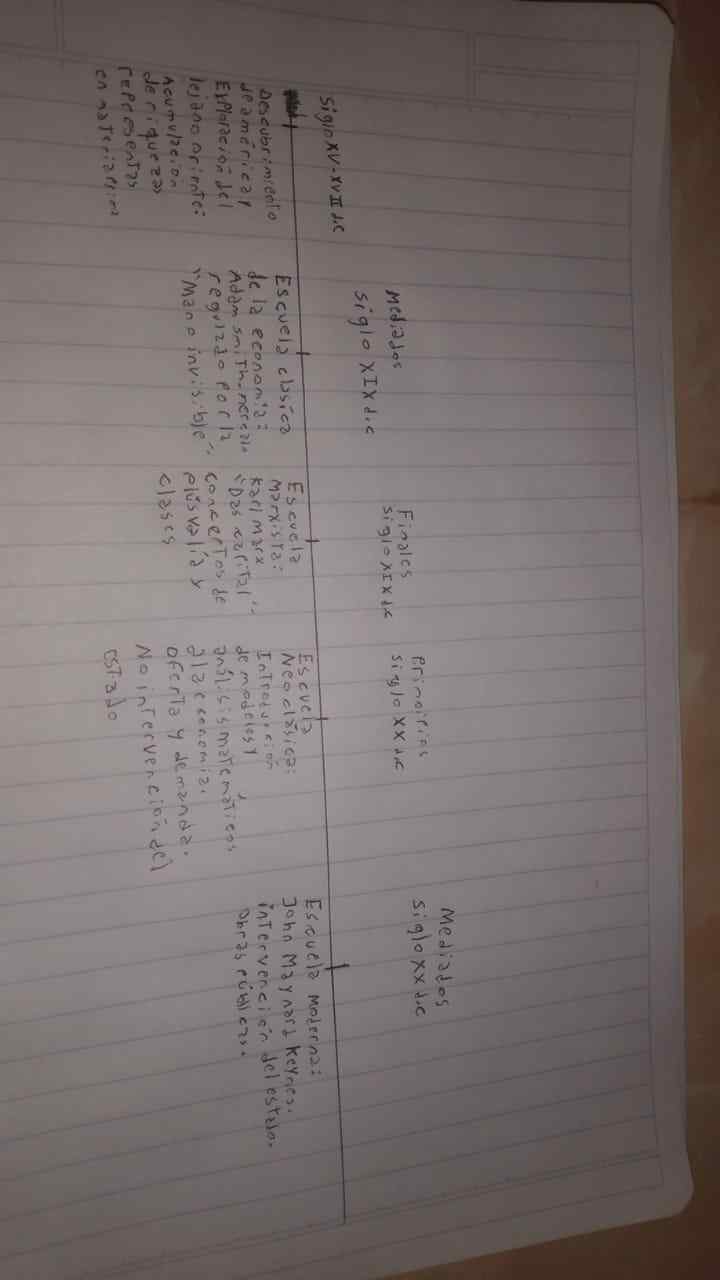 Siglo XV-XVII d.C
Descubrimiento
de américa y
Exploración del
lejano oriente:
Acumulación
de riquezas
representas
en materia prima
Mediados
siglo XIX d.C
Escuela clásica
de la economia:
Adam smith-mercado
regulado por la
"Mano invisible".
Finales
siglo XIX d.C
Escuela
marxista:
Karl marx
"Das capital".
conceptos de
plusvalía y
clases
principios
siglo XX d.C
Escuela
Neoclásica:
Introducción
de modelos y
análisis matemáticos
a la economia.
oferta y demanda.
No intervención del
estado
Mediados
siglo XX d.C
Escuela moderna:
John Maynard Keynes.
intervención del estado.
obras públicas.